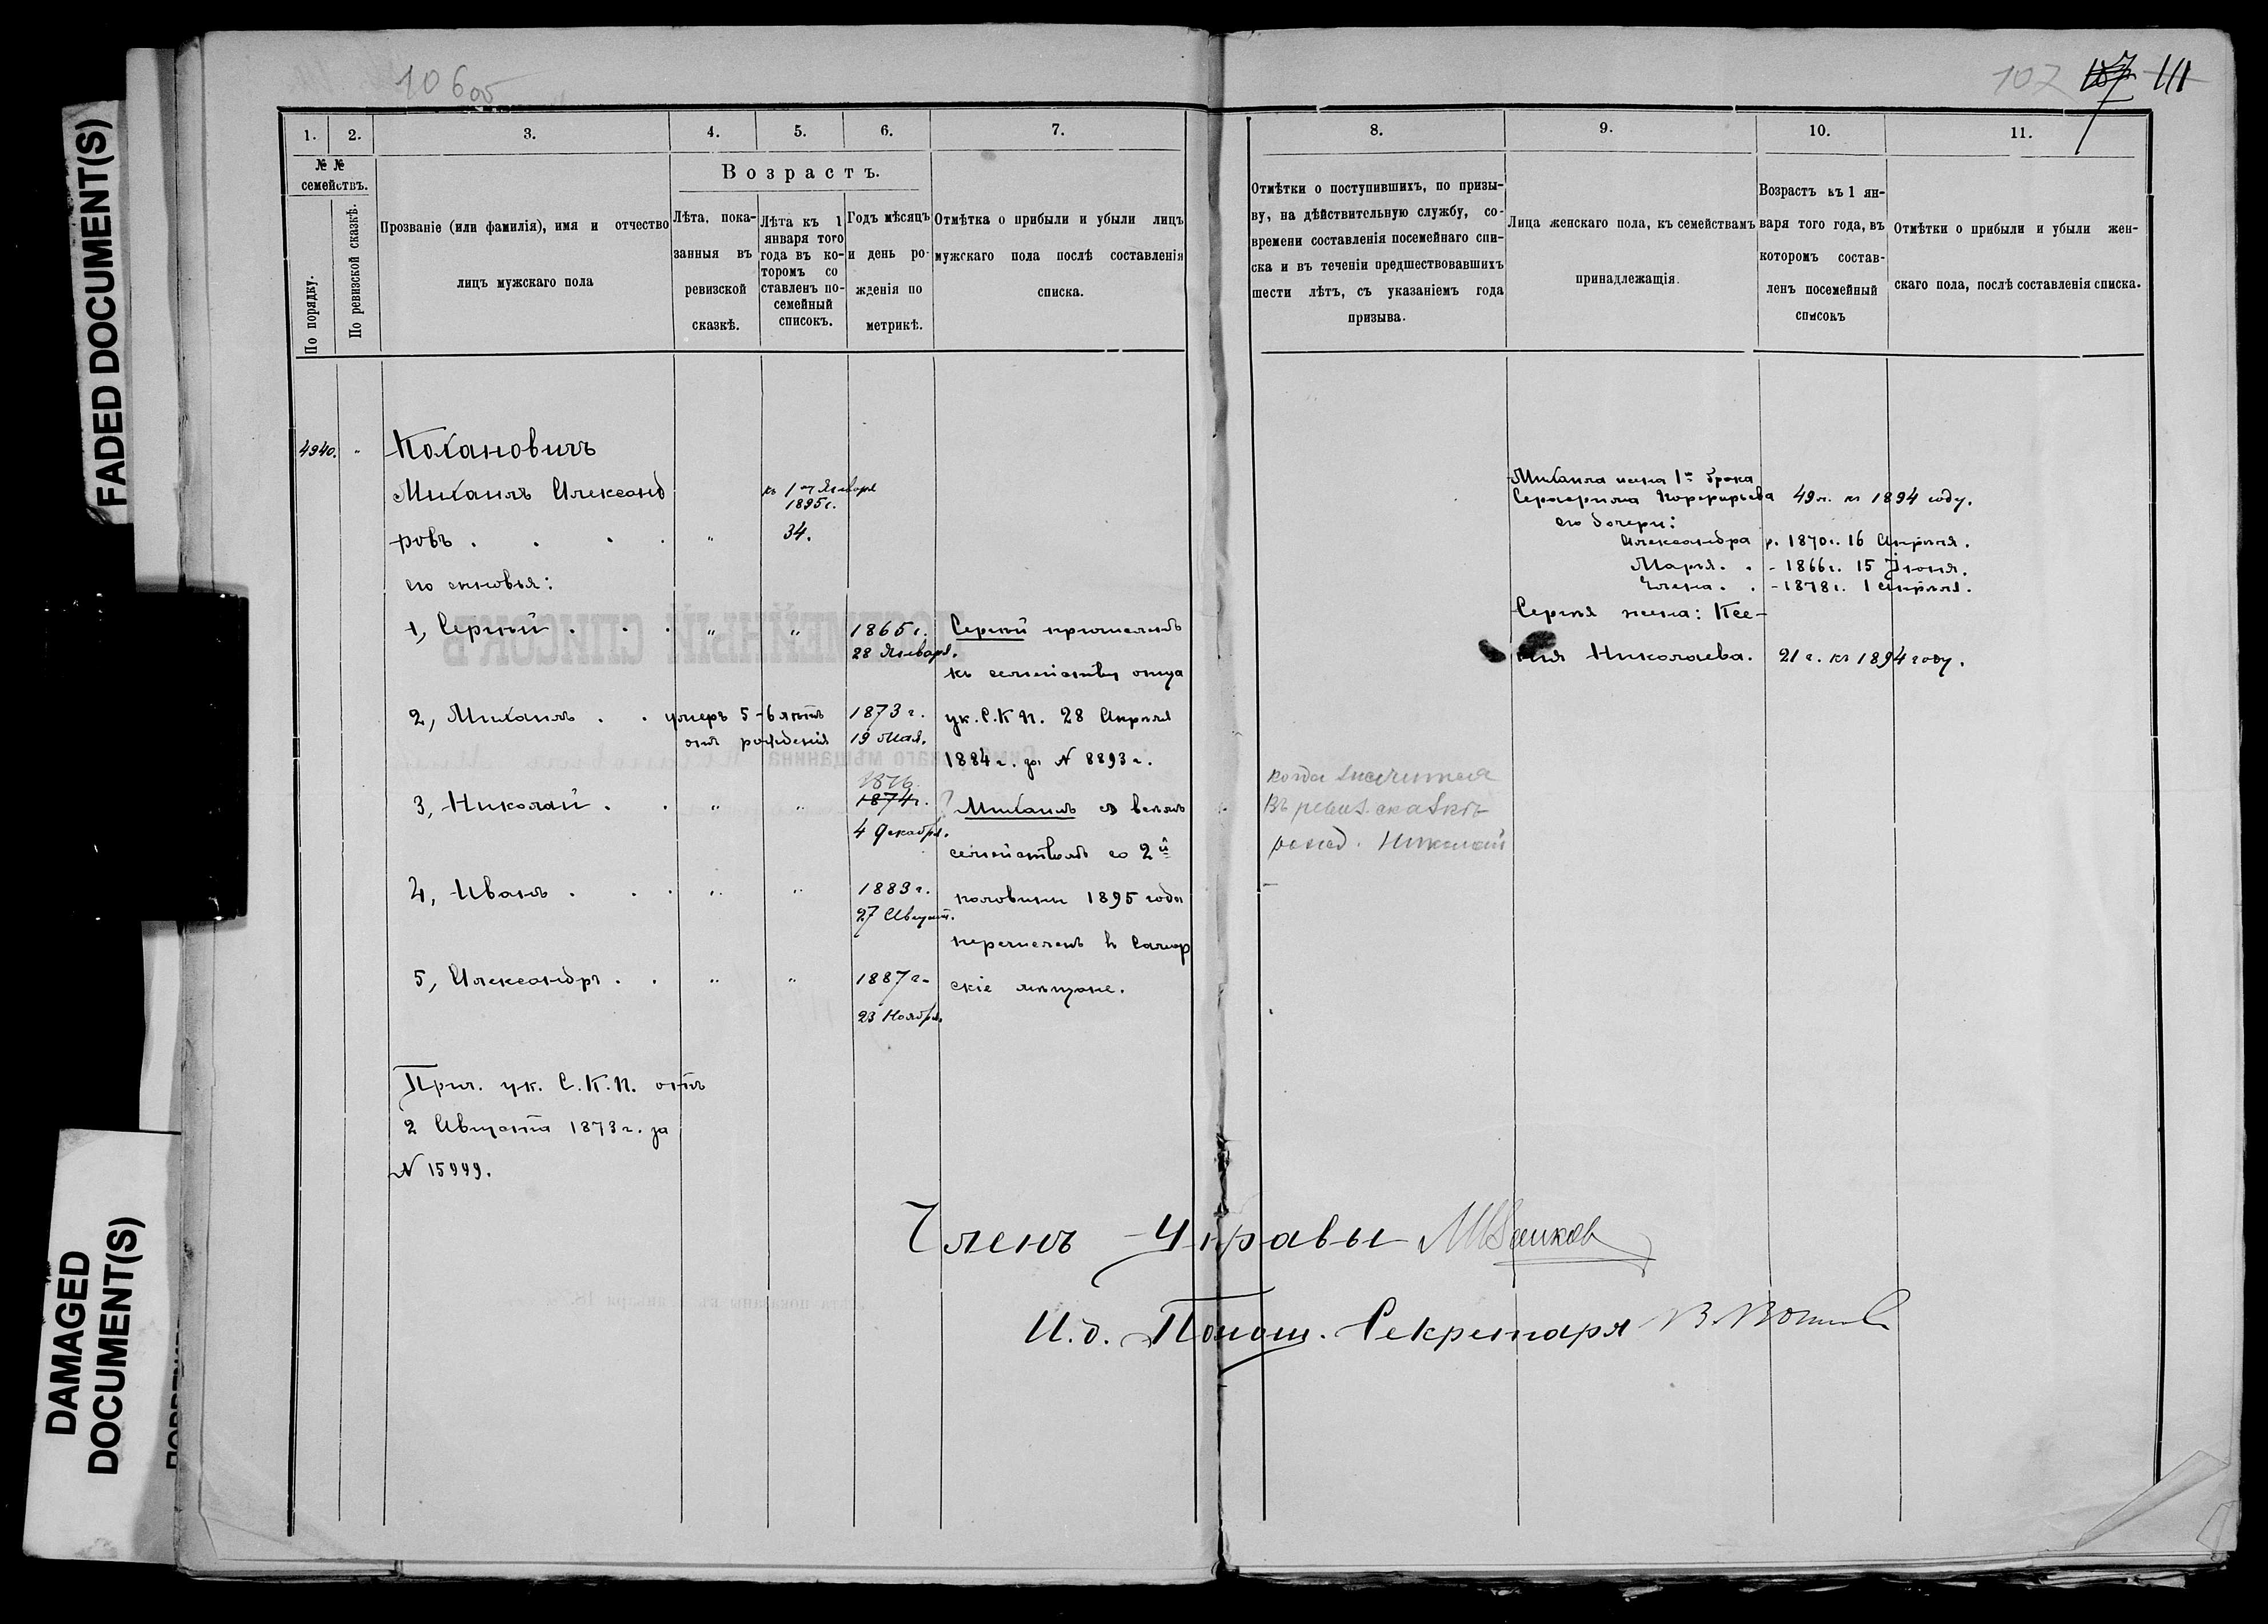 106 об
107 107 111
FADED DOCUMENT(S)
DAMAGED
DOCUMENT(S)
1. 2. 3. 4. 5. 6. 7.
№ №
семействъ.
По порядку.
По ревизской сказкѣ.
Прозваніе (или фамилія), имя и отчество
лицъ мужскаго пола
Возрастъ.
Лѣта, пока-
занныя въ
ревизской
сказкѣ.
Лѣта къ 1
января того
года въ ко-
торомъ со
ставленъ по-
семейный
списокъ.
Годъ мѣсяцъ
и день ро-
жденія по
метрикѣ.
Отмѣтка о прибыли и убыли лицъ
мужскаго пола послѣ составленія
списка.
8. 9. 10. 11.
Отмѣтки о поступившихъ, по призы-
ву, на дѣйствительную службу, со-
времени составленія посемейнаго спи-
ска и въ теченіи предшествовавшихъ
шести лѣтъ, съ указаніемъ года
призыва.
Лица женскаго пола, къ семействамъ
принадлежащія.
Возрастъ къ 1 ян-
варя того года, въ
которомъ состав-
ленъ посемейный
списокъ
Отмѣтки о прибыли и убыли жен-
скаго пола, послѣ составленія списка.
4940. " Кохановичъ
Михаилъ Александ
къ 1му Января
1895 г.
ровъ . . . . " 34.
его сыновья:
1, Сергѣй . . . " " 1865 г.
28 Января.
2, Михаилъ . . умеръ 5-6 лѣтъ
отъ рожденія
1873 г.
19 Мая.
3, Николай . . " " 1876
1874 г.
4 Декабря.
4, Иванъ . . . " " 1883 г.
27 Август.
5, Александръ . . " " 1887 г.
23 Ноября.
Сергѣй причисленъ
къ семейству отца
ук. С.К.П. 28 Апрѣля
1884 г. за N 8893 г.
? Михаилъ съ всѣмъ
семействомъ со 2й
половины 1895 года
перечисленъ въ Самар
скіе мѣщане.
Прич. ук. С.К.П. отъ
2 Августа 1873 г. за
N 15999.
когда значится
Въ ревиз. сказкѣ
рожд. Николай
Михаила жена 1го брака
Серафима Порфирьева 49 л. къ 1894 году.
его дочери:
Александра р. 1870 г. 16 Апрѣля.
Марья . . - 1866 г. 15 Іюня.
Елена . . - 1878 г. 1 Апрѣля.
Сергѣя жена: Ксе-
нія Николаева. 21 г. къ 1894 году.
Членъ Управы
И.д. Помощ. Секретаря